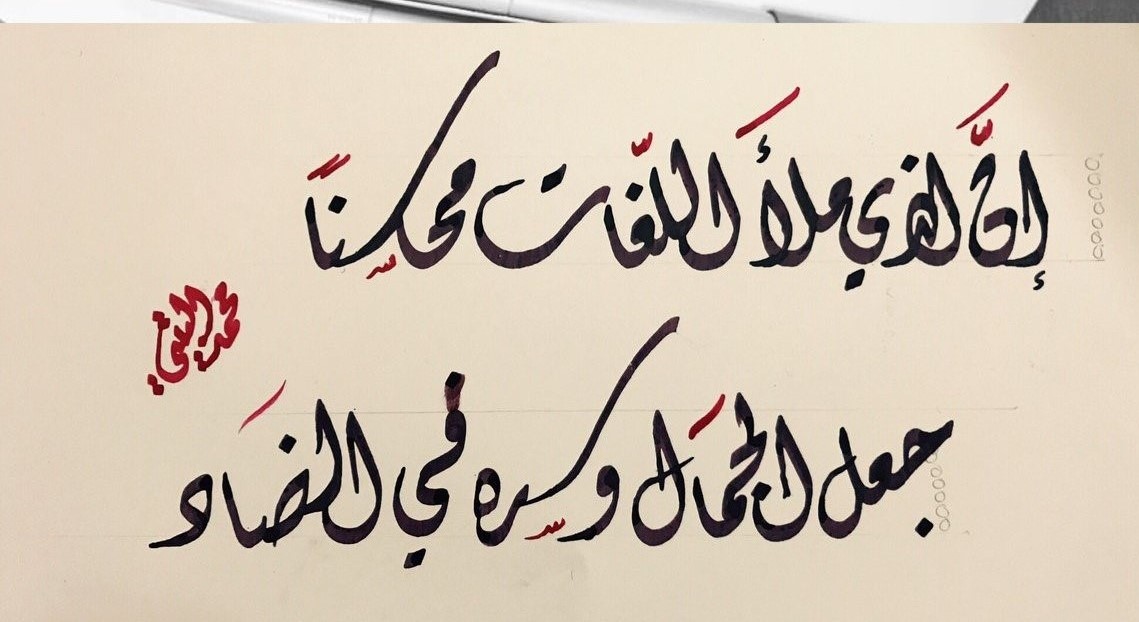 إنَّ الذي ملأَ اللغّات محاسِنًا
جعل الجمَال وسره في الضَاد